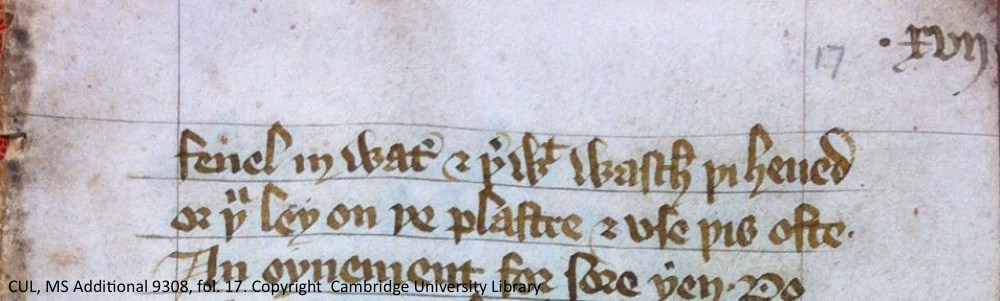 17 · xvij
fenel in wat̉ ⁊ þ̉wᵗ wasch þi heued
or þᵘ ley on þe plastre ⁊ vse þis ofte·
An oynement for sore yen· Do
CUL, MS Additional 9308, fol. 17. Copyright Cambridge University Library